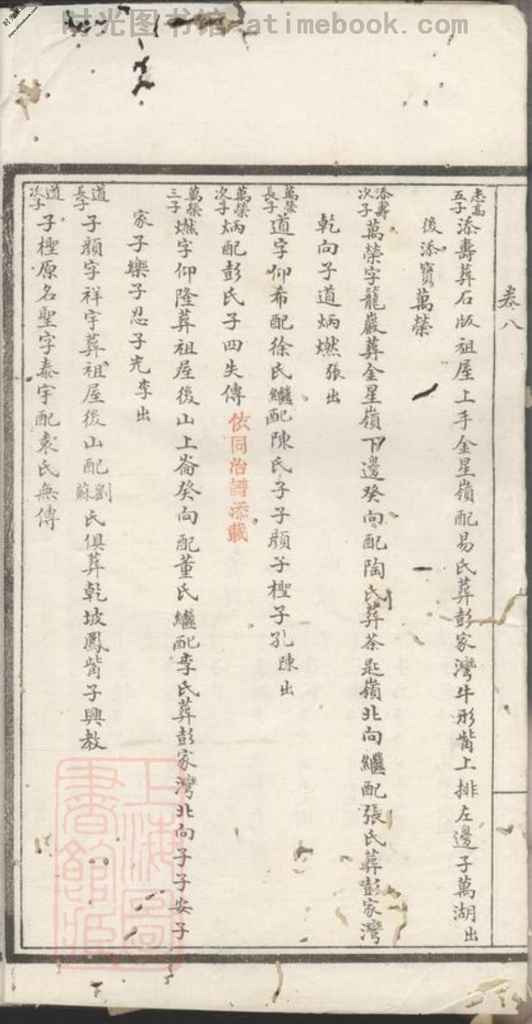 时光图书馆-atimebook.com
卷八
志高五子添壽葬石版祖屋上手金星嶺配易氏葬彭家灣牛形嘴上排左邊子萬湖出
後添寳萬榮
添壽次子萬榮字龍巖葬金星嶺下邊癸向配陶氏葬茶匙嶺北向繼配張氏葬彭家灣
乾向子道炳燃張出
萬榮長子道字仰希配徐氏繼配陳氏子子顏子樫子孔陳出
萬榮次子炳配彭氏子四失傳依同治譜添載
萬榮三子燃字仰隆葬祖屋後山上崙癸向配董氏繼配李氏葬彭家灣北向子子安子
家子樂子忍子先李出
道長子子顏字祥宇葬祖屋後山配劉蘇氏俱葬乾坡鳳嘴子興教
道次子子樫原名聖字泰宇配袁氏無傳
上海圖書館藏